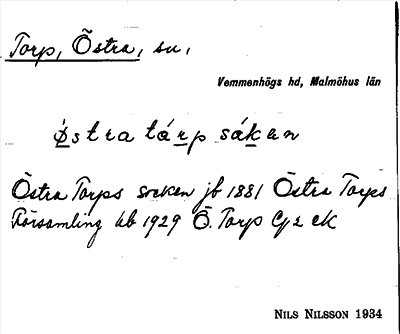 Torp, Östra, sn,
Vemmenhögs hd, Malmöhus län
Østra tárp sáken
Östra Torps socken jb 1881 Östra Torps
Församling kb 1929 Ö. Torp Cg 2 ek
NILS NILSSON 1934